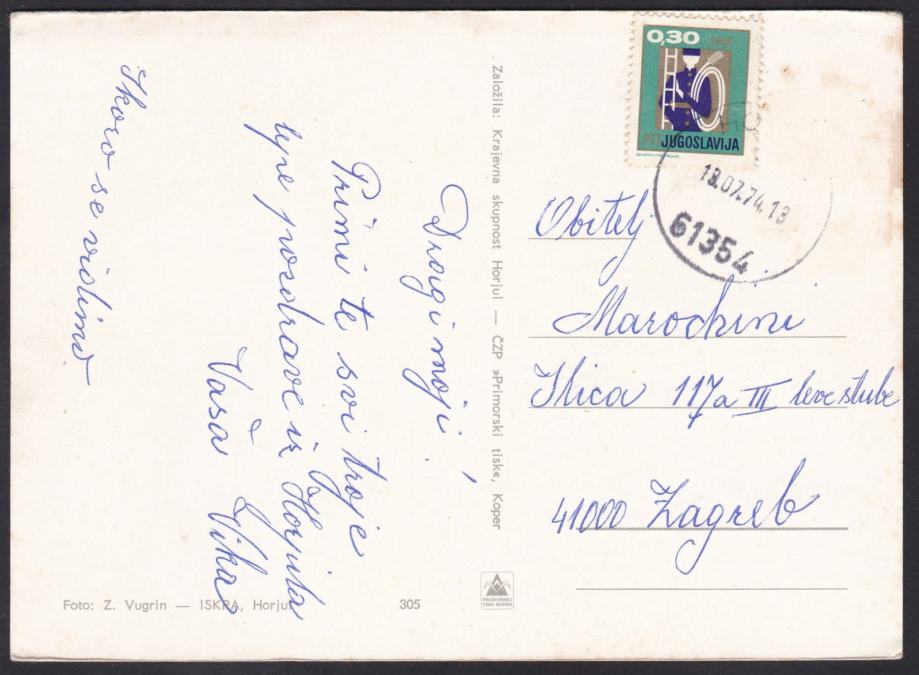 Dragi moji!
Primi te svi troje
lijepe pozdrave iz Horjula
Vaša Vika
Skoro se vidimo
Založila: Krajevna skupnost Horjul — ČZP »Primorski tisk«, Koper
Foto: Z. Vugrin — ISKRA, Horjul
305
PRIMORSKI
TISK KOPER
0,30
PTT JUGOSLAVIJA
18.07.74.13
61354
Obitelj
Marochini
Ilica 117a III leve stube
41000 Zagreb